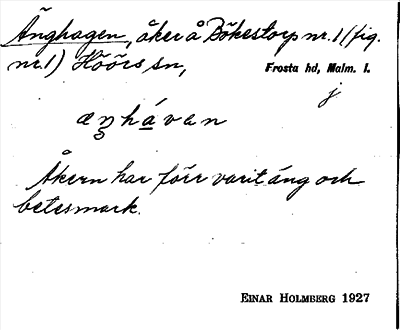 Änghagen, åker å Bökestorp nr. 1 (fig.
nr. 1) Höörs sn, Frosta hd, Malm. l.
j
æŋhávan
Åkern har förr varit äng och
betesmark.
EINAR HOLMBERG 1927